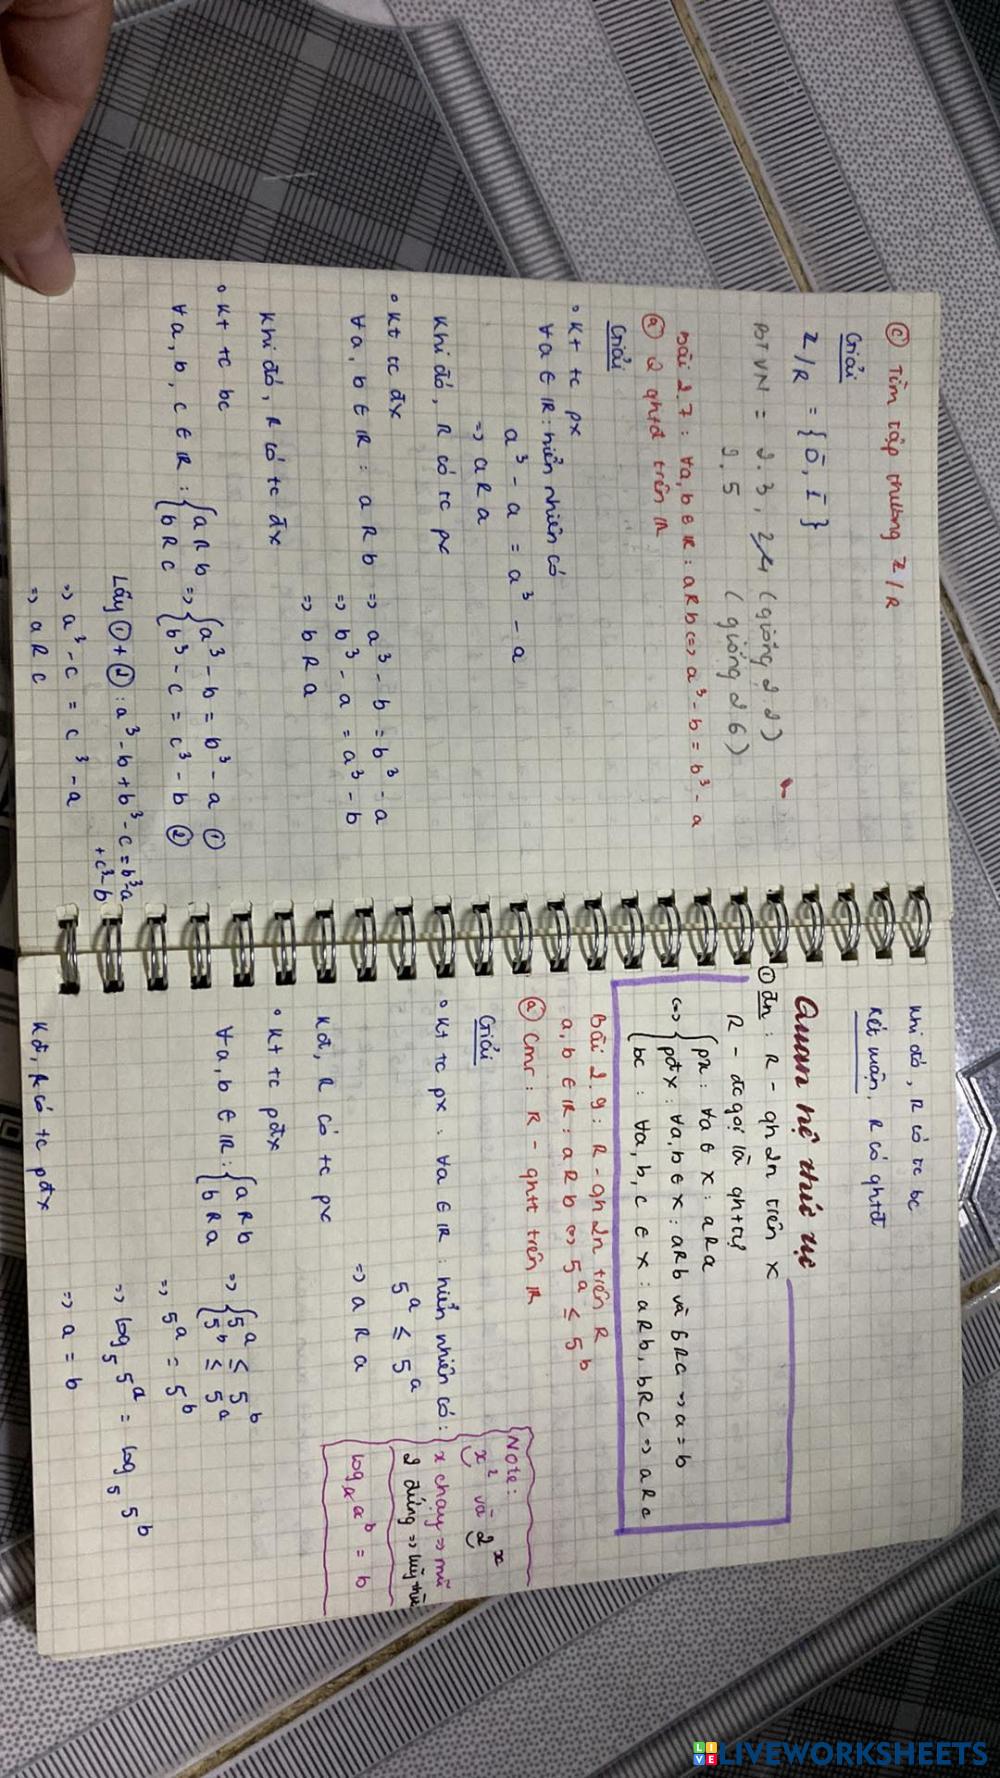 ⓒ Tìm tập thương Z/R
Giải
Z/R = { 0̄, 1̄ }
BTVN = 2.3, 2.4 (giống 2.2)
2.5 (giống 2.6)
Bài 2.7 : ∀a, b ∈ ℝ : aRb ⇔ a³ - b = b³ - a
ⓐ 2 qhtđ trên ℝ
Giải
° Kt tc px
∀a ∈ ℝ : hiển nhiên có
a³ - a = a³ - a
⇒ aRa
Khi đó, R có tc px
° Kt tc đx
∀a, b ∈ ℝ : aRb ⇒ a³ - b = b³ - a
⇒ b³ - a = a³ - b
⇒ bRa
Khi đó, R có tc đx
° Kt tc bc
∀a, b, c ∈ ℝ : { aRb ⇒ { a³ - b = b³ - a ①
{ bRc { b³ - c = c³ - b ②
Lấy ① + ② : a³ - b + b³ - c = b³ - a
+ c³ - b
⇒ a³ - c = c³ - a
⇒ aRc
Khi đó, R có tc bc
Kết luận, R có qhtđ
Quan hệ thứ tự
① đn : R - qh 2n trên X
R - đc gọi là qhttự
⇔ { px : ∀a ∈ X : aRa
{ pđx : ∀a, b ∈ X : aRb và bRa ⇒ a = b
{ bc : ∀a, b, c ∈ X : aRb, bRc ⇒ aRc
Bài 2.9 : R - qh 2n trên R
a, b ∈ ℝ : aRb ⇔ 5ᵃ ≤ 5ᵇ
ⓐ Cmr : R - qhtt trên ℝ
Giải
° Kt tc px : ∀a ∈ ℝ : hiển nhiên có :
5ᵃ ≤ 5ᵃ
⇒ aRa
Kđ, R có tc px
° Kt tc pđx
∀a, b ∈ ℝ : { aRb ⇒ { 5ᵃ ≤ 5ᵇ
{ bRa { 5ᵇ ≤ 5ᵃ
⇒ 5ᵃ = 5ᵇ
⇒ log₅ 5ᵃ = log₅ 5ᵇ
⇒ a = b
Kđ, R có tc pđx
Note :
x² và 2ˣ
x chạy ⇒ mũ
2 đứng ⇒
logₐ aᵇ = b
LIVEWORKSHEETS